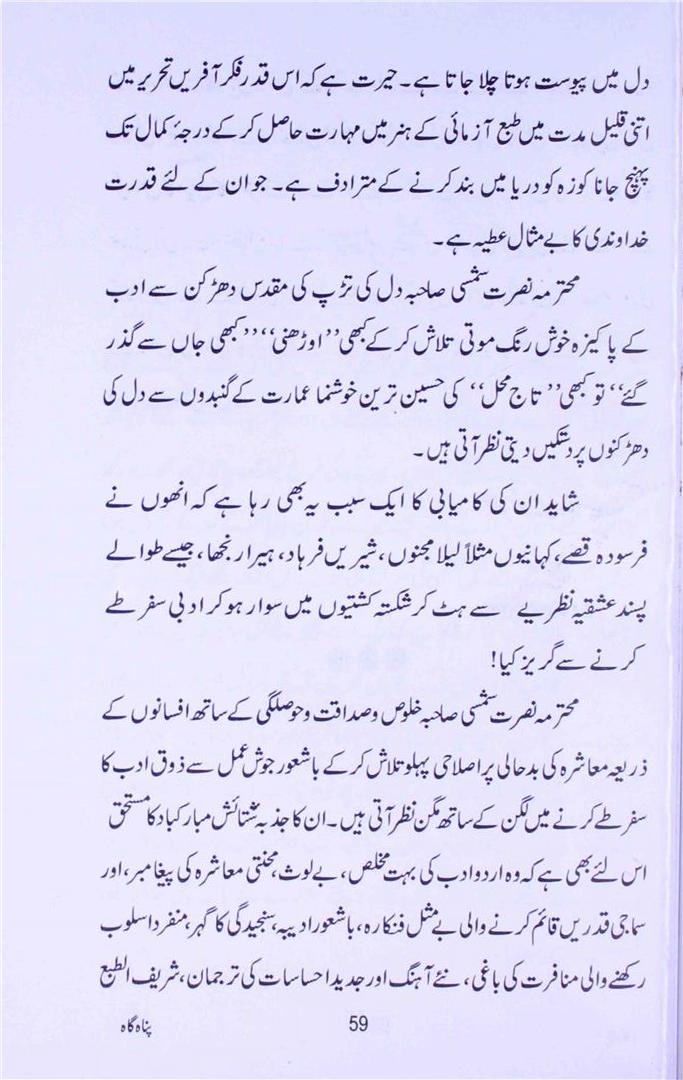 دل میں پیوست ہوتا چلا جاتا ہے۔ حیرت ہے کہ اس قدر فکر آفریں تحریر میں
اتنی قلیل مدت میں طبع آزمائی کے ہنر میں مہارت حاصل کر کے درجۂ کمال تک
پہنچ جانا کوزہ کو دریا میں بند کرنے کے مترادف ہے۔ جو ان کے لئے قدرت
خداوندی کا بے مثال عطیہ ہے۔
محترمہ نصرت شمسی صاحبہ دل کی تڑپ کی مقدس دھڑکن سے ادب
کے پاکیزہ خوش رنگ موتی تلاش کر کے کبھی ’’اوڑھنی‘‘ ’’کبھی جاں سے گذر
گئے‘‘ تو کبھی ’’تاج محل‘‘ کی حسین ترین خوشنما عمارت کے گنبدوں سے دل کی
دھڑکنوں پر دستکیں دیتی نظر آتی ہیں۔
شاید ان کی کامیابی کا ایک سبب یہ بھی رہا ہے کہ انھوں نے
فرسودہ قصے، کہانیوں مثلاً لیلا مجنوں، شیریں فرہاد، ہیرا رنجھا، جیسے طوالے
پسند عشقیہ نظریے سے ہٹ کر شکستہ کشتیوں میں سوار ہو کر ادبی سفر طے
کرنے سے گریز کیا!
محترمہ نصرت شمسی صاحبہ خلوص و صداقت و حوصلگی کے ساتھ افسانوں کے
ذریعہ معاشرہ کی بدحالی پر اصلاحی پہلو تلاش کر کے باشعور جوش عمل سے ذوق ادب کا
سفر طے کرنے میں لگن کے ساتھ مگن نظر آتی ہیں۔ ان کا جذبہ ستائش مبارکباد کا مستحق
اس لئے بھی ہے کہ وہ اردو ادب کی بہت مخلص، بے لوث، محنتی معاشرہ کی پیغامبر، اور
سماجی قدریں قائم کرنے والی بے مثل فنکارہ، باشعور ادیبہ، سنجیدگی کا گہر، منفرد اسلوب
رکھنے والی منافرت کی باغی، نئے آہنگ اور جدید احساسات کی ترجمان، شریف الطبع
59
پناہ گاہ